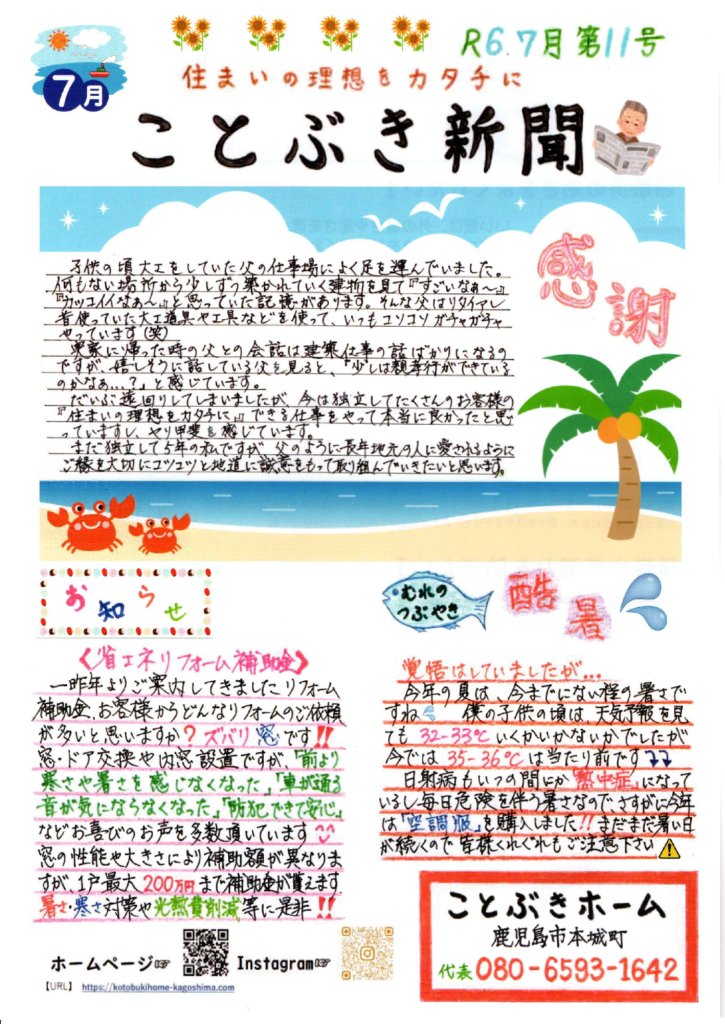 7月
R6.7月第11号
住まいの理想をカタチに
ことぶき新聞
感謝
子供の頃大工をしていた父の仕事場によく足を運んでいました。
何もない場所から少しずつ築かれていく建物を見て『すごいなぁ〜』
『カッコイイなぁ〜』と思っていた記憶があります。そんな父はリタイアし
昔使っていた大工道具や工具などを使って、いつもコソコソガチャガチャ
やっています(笑)
実家に帰った時の父との会話は建築仕事の話ばかりになるの
ですが、嬉しそうに話している父を見ると、『少しは親孝行ができている
のかなぁ…?』と感じています。
だいぶ遠回りしてしまいましたが、今は独立してたくさんのお客様の
『住まいの理想をカタチに』できる仕事をやって本当に良かったと思
っていますし、やり甲斐を感じています。
まだ独立して5年の私ですが、父のように長年地元の人に愛されるように
ご縁を大切にコツコツと地道に誠意をもって取り組んでいきたいと思います。
お知らせ
《省エネリフォーム補助金》
一昨年よりご案内してきましたリフォーム
補助金、お客様からどんなリフォームのご依頼
が多いと思いますか?ズバリ窓です!!
窓・ドア交換や内窓設置ですが、「前より
寒さや暑さを感じなくなった」「車が通る
音が気にならなくなった」「防犯できて安心」
などお喜びのお声を多数頂いています
窓の性能や大きさにより補助額が異なりま
すが、1戸最大200万円まで補助金が貰えます
暑さ・寒さ対策や光熱費削減等に是非!!
むれの
つぶやき
酷暑
覚悟はしていましたが…
今年の夏は、今までにない程の暑さで
すね 僕の子供の頃は、天気予報を見
ても32-33℃いくかいかないかでしたが
今では35-36℃は当たり前です
日射病もいつの間にか「熱中症」になって
いるし毎日危険を伴う暑さなので、さすがに今年
は「空調服」を購入しました!!まだまだ暑い日
が続くので皆様くれぐれもご注意下さい
ホームページ☞
Instagram☞
【URL】 https://kotobukihome-kagoshima.com
ことぶきホーム
鹿児島市本城町
代表080-6593-1642